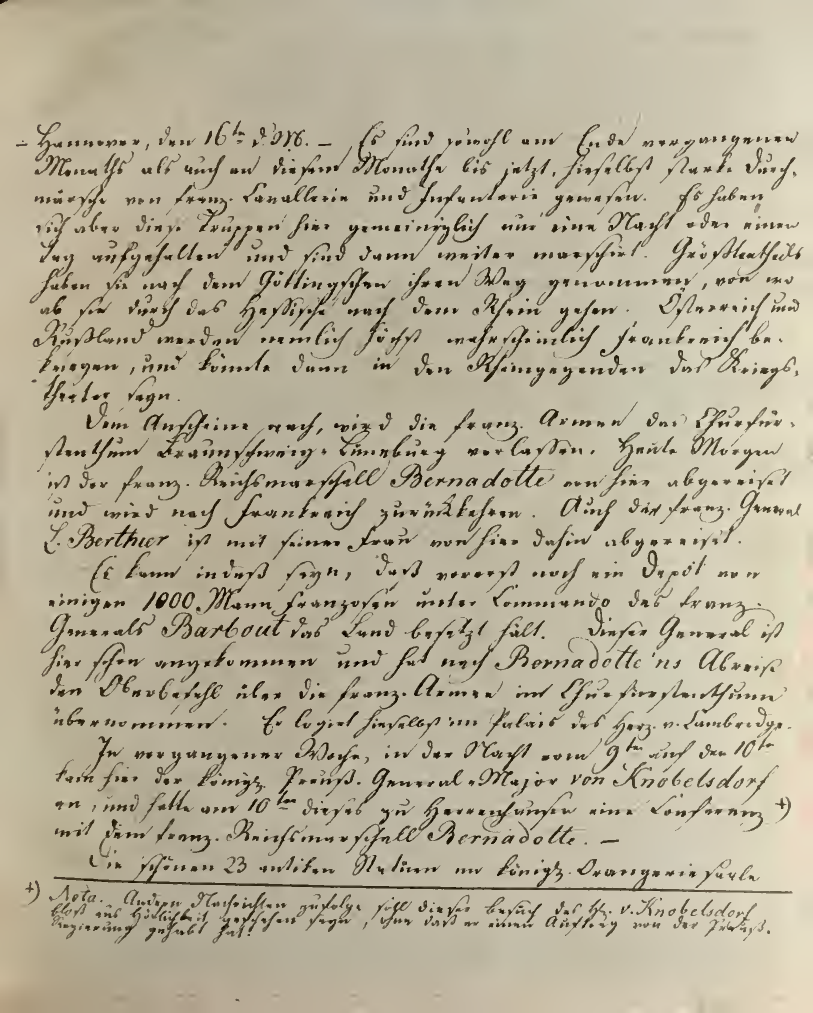 – Hannover, den 16ten d. M. – Es sind sowohl am Ende vergangenen
Monaths als auch an diesem Monathe bis jetzt, hieselbst starke Durch-
märsche von franz. Cavallerie und Infanterie gewesen. Es haben
sich aber diese Truppen hier gemeiniglich nur eine Nacht oder einen
Tag aufgehalten und sind dann weiter marschirt. Größtentheils
haben sie nach dem Göttingschen ihren Weg genommen, von wo
ab sie durch das Hessische nach dem Rhein gehen. Österreich und
Rußland werden nemlich höchst wahrscheinlich Frankreich be-
kriegen, und könnte dann in den Rheingegenden das Kriegs-
theater seyn.
Dem Anscheine nach, wird die franz. Armee das Churfür-
stenthum Braunschweig-Lüneburg verlassen. Heute Morgen
ist der franz. Reichsmarschall Bernadotte von hier abgereiset
und wird nach Frankreich zurückkehren. Auch der franz. General
L. Berthier ist mit seiner Frau von hier dahin abgereiset.
Es kann indeß seyn, daß vorerst noch ein Depot von
einigen 1000 Mann Franzosen unter Commando des franz.
Generals Barbout das Land besetzt hält. Dieser General ist
hier schon angekommen und hat nach Bernadotte'ns Abreise
den Oberbefehl über die franz. Armee im Churfürstenthume
übernommen. Er logirt hieselbst im Palais des Herz. v. Cambridge.
In vergangener Woche, in der Nacht vom 9ten auf den 10ten
kam hier der königl. Preuß. General-Major von Knobelsdorf
an, und hatte am 10ten dieses zu Herrenhausen eine Conferenz +)
mit dem franz. Reichsmarschall Bernadotte. –
Die schönen 23 antiken Statuen im königl. Orangeriesaale
+) Nota. Andern Nachrichten zufolge soll dieser Besuch des H. v. Knobelsdorf
bloß aus Höflichkeit geschehen seyn, ohne daß er einen Auftrag von der Preuß.
Regierung gehabt hat.